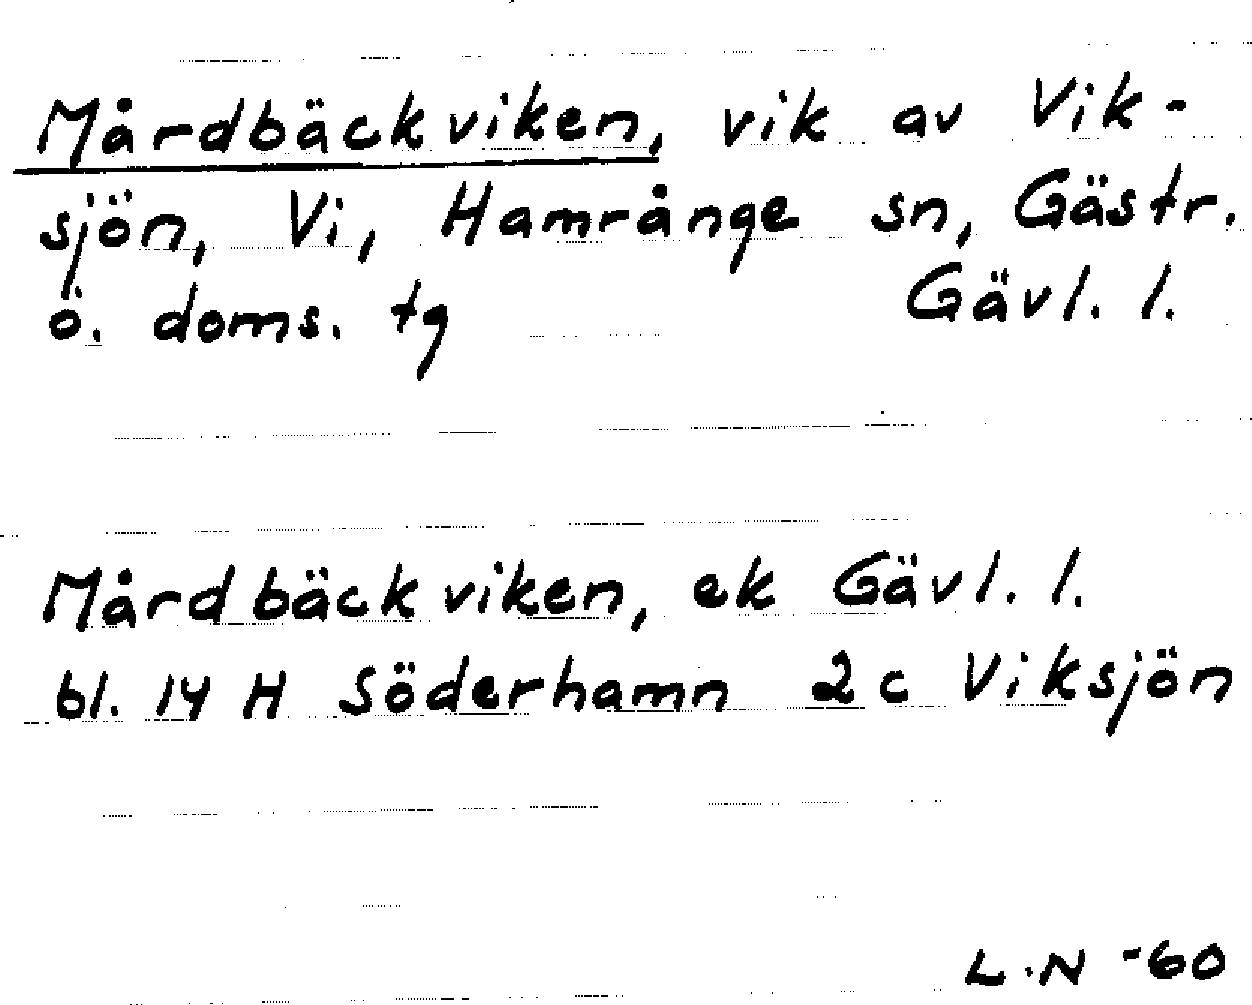 Mårdbäckviken, vik av Vik-
sjön, Vi, Hamrånge sn, Gästr.
ö. doms. tg Gävl. l.
Mårdbäckviken, ek Gävl. l.
bl. 14 H Söderhamn 2c Viksjön
L.N -60